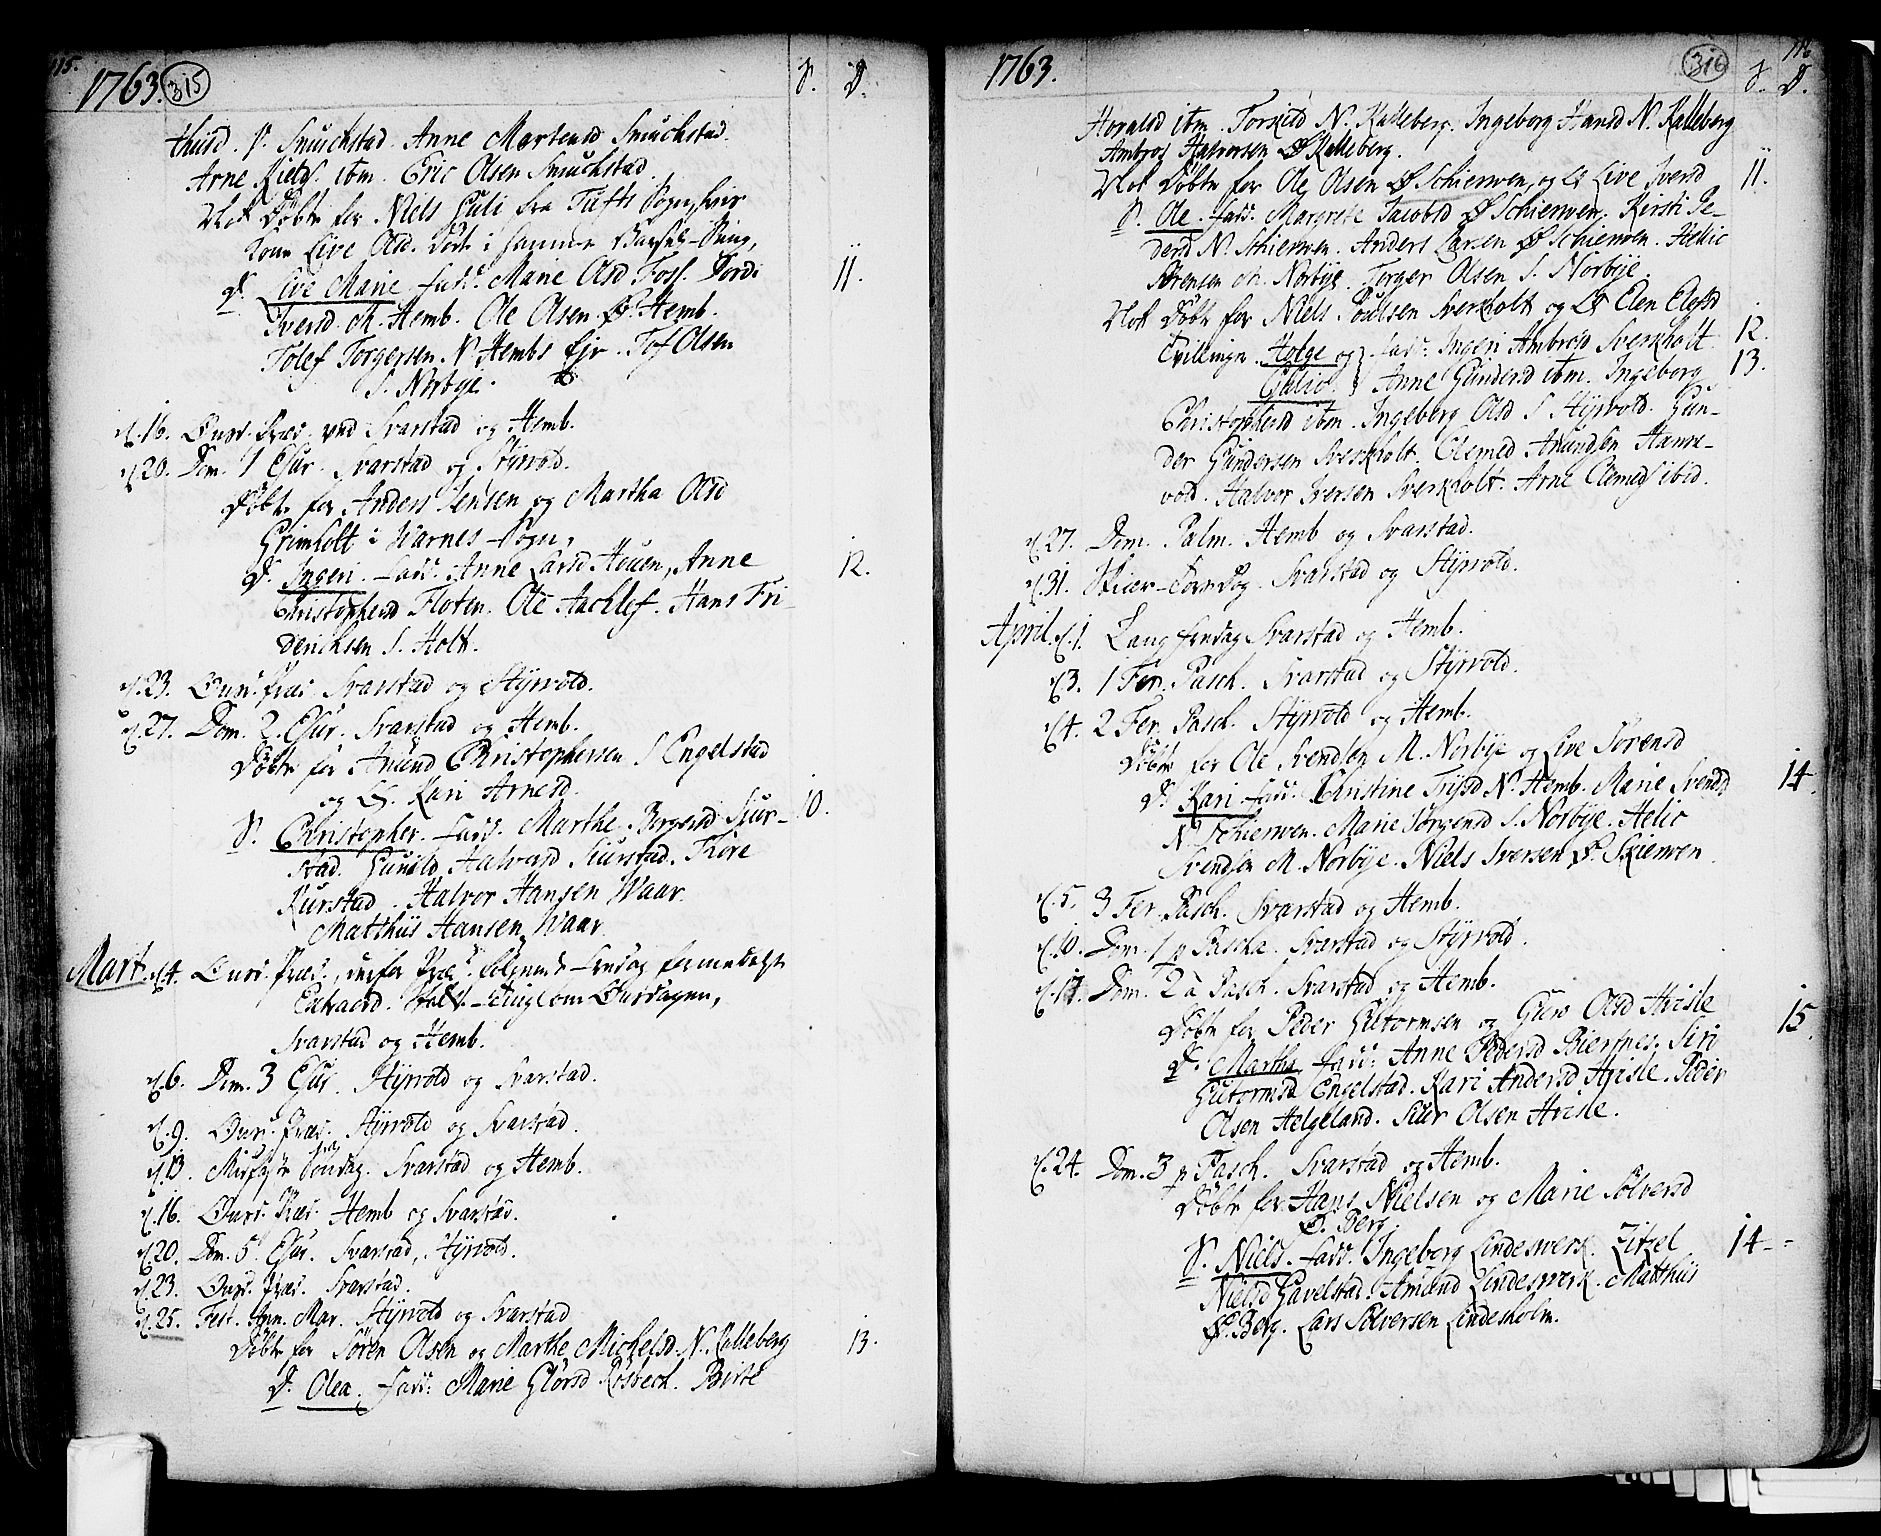 115.
1763. 315 S. D.
Thuisd. S. Smuchstad. Anne Martensd Smuchstad.
Arne ibm. Eric Olsen Smuchstad.
Nok Døbt for Niels Guli fra Tufts Sogn, hvis
Kone Live Olsd. døde i samme Barsel-Seng,
D. Live Marie. fadd: Marie Olsd Foss. Tordi 11.
Iversd. M. Hemb. Ole Olsen Ø. Hemb.
Tolef Torgersen. N Hembs Eje. Tof Olsen
S. Norbye.
d. 16. Onsd. Præd. ved Svarstad og Hemb.
d. 20. Dom. 1 Esur. Svarstad og Styrvold.
Døbt for Anders Jensen og Martha Olsd
Grimholt i Warnes Sogn,
D. Ingeri. fadd: Anne Larsd Houen, Anne 12.
Christophersd Floten. Ole Hachlef. Hans Fri-
derichsen S. Holt.
d. 23. Onsd. Præd. Svarstad og Styrvold.
d. 27. Dom. 2. Esur. Svarstad og Hemb.
Døbt for Amund Christophersen S Engelstad
og H. Kari Arnesd.
S. Christopher. fadd. Marthe Borgersd Kiur- 10.
stad. Gunild Halvorsd Kiurstad. Tore
Kiurstad. Halvor Hansen Waar.
Matthiis Hansen Waar.
Mart. d. 4. Onsd. Præd.
Svarstad og Hemb.
d. 6. Dom. 3 Esur. Styrvold og Svarstad.
d. 9. Onsd. Præd. Styrvold og Svarstad.
d. 13. Midfaste Søndag. Svarstad og Hemb.
d. 16. Onsd. Præd. Hemb og Svarstad.
d. 20. Dom. 5. Esur. Svarstad, Styrvold.
d. 23. Onsd. Præd. Svarstad.
d. 25. Fest. Ann. Mar. Styrvold og Svarstad
Døbt for Søren Olsen og Marthe Michelsd. N. Kalleberg 13.
D. Olea. fadd: Marie Glørsd Røsbech. Birte
1763. 316 116 S. D.
Horaldsd ibm. Torkild N. Kalleberg. Ingeborg Hansd N. Kalleberg
Ambros Halvorsen Ø Kalleberg.
Nok Døbt for Ole Olsen Ø Schierven, og H Live Iversd 11.
S. Ole. fadd: Margrete Jacobsd Ø Schierven. Kersti Pe-
dersd N. Schierven. Anders Larsen Ø Schierven. Helie
Sørensen M. Norbye. Torger Olsen S. Norbye.
Nok Døbt for Niels Poulsen Sverkholt og H Elen
Tvillinger. Helge og fadd: Ingeri Ambrosd Sverkholt 12.
Anne Gundersd ibm. Ingeborg 13.
Christophersd ibm. Ingeborg Olsd S Styrvold. Gun-
der Gundersen Sverkholt. Amundsen Hanne-
vold. Halvor Iversen Sverkholt. Arne ibid.
d. 27. Dom. Palm. Hemb og Svarstad.
d. 31. Skier-Torsdag. Svarstad og Styrvold.
April. d. 1. Lang fredag Svarstad og Hemb.
d. 3. 1 Fer. Pasch. Svarstad og Styrvold.
d. 4. 2 Fer. Pasch. Styrvold og Hemb.
Døbt for Ole Svendsen M. Norbye og Live Sørensd
D. Kari. fadd. Christine N. Hemb. Marie Svendsd 14.
N. Schierven. Marie Jørgensd S. Norbye. Helie
Svendsen M. Norbye. Niels Iversen Ø. Skierven.
d. 5. 3 Fer. Pasch. Svarstad og Hemb.
d. 10. Dom. 1 p. Pascha. Svarstad og Styrvold.
d. 17. Dom. 2 à Pasch. Svarstad og Hemb.
Døbt for Peder Gutormsen og Guro Olsd Hvisle 15.
D. Martha. fadd. Anne Pedersd Biersnes. Siri
Gutormsd Engelstad. Kari Andersd Hvisle. Peder
Olsen Helgeland. Siur Olsen Hvisle.
d. 24. Dom. 3 p Pasch. Svarstad og Hemb.
Døbt for Hans Nielsen og Marie Solversd
Ø. Berg
S. Niels. fadd. Ingeborg Lindeswerk. Zitzel 14.
Nielsd Gavelstad. Amund Lindeswerk. Matthiis
Ø. Berg. Lars Solversen Lindesholm.